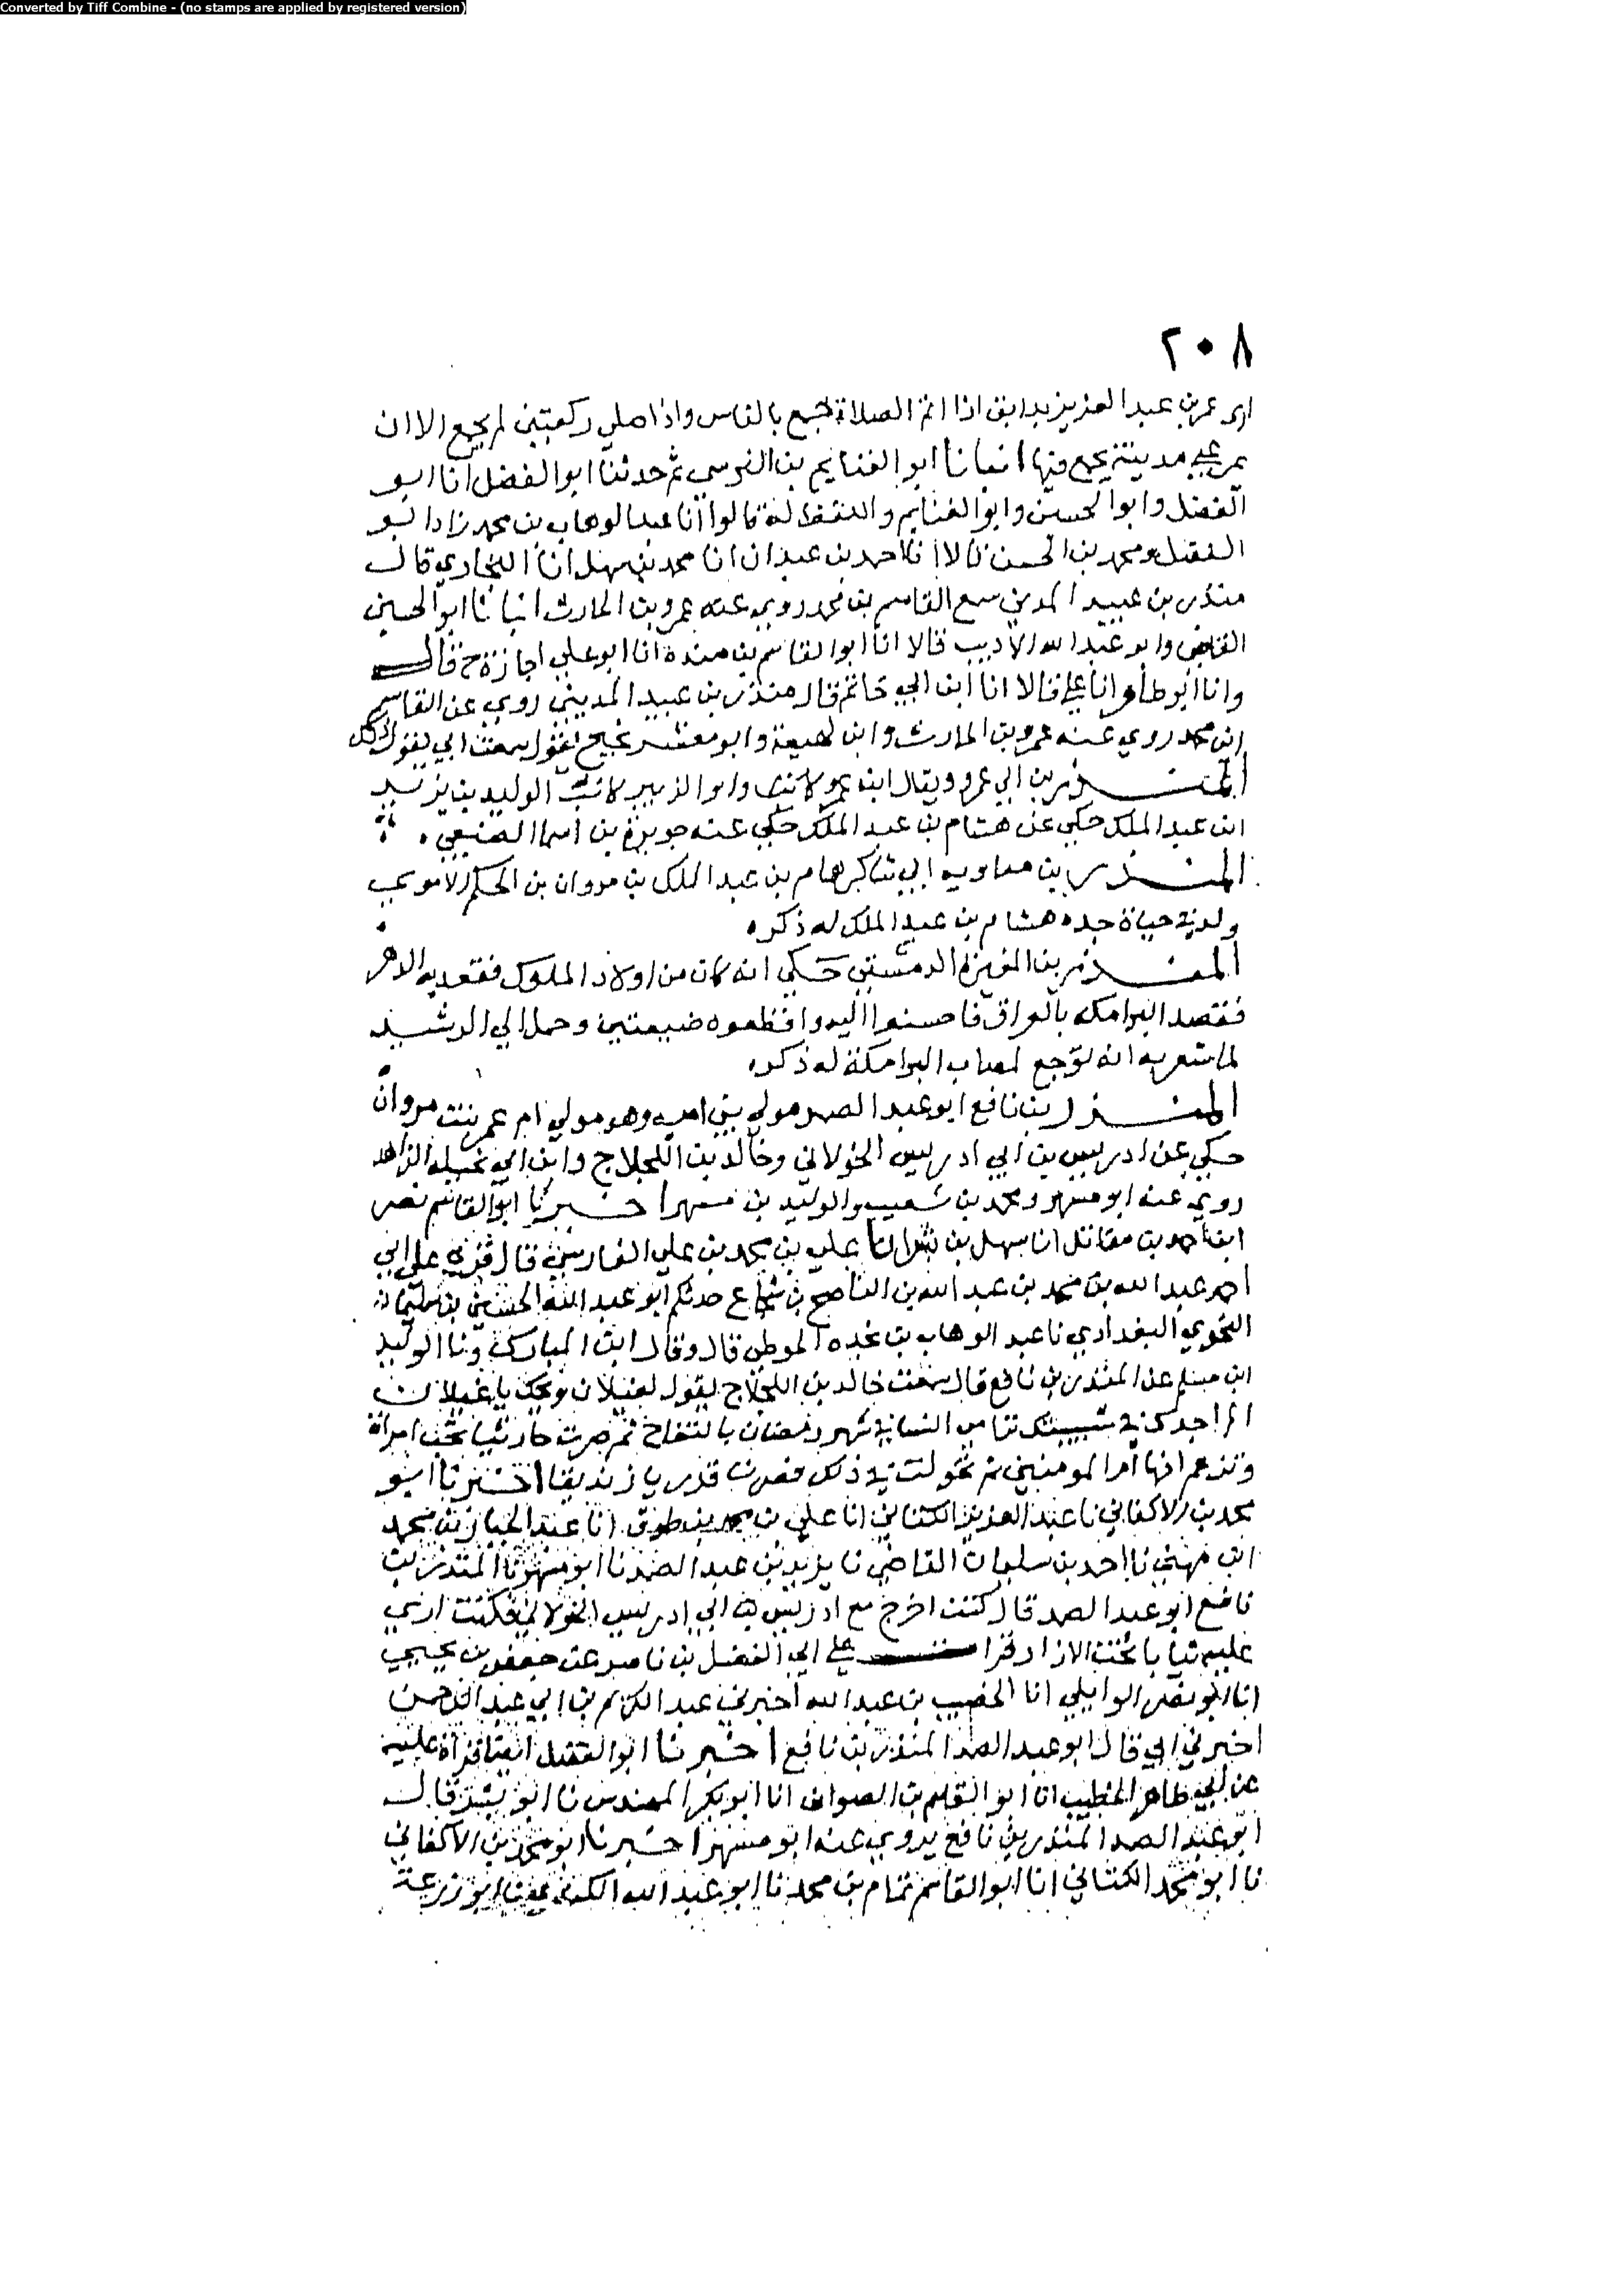 Converted by Tiff Combine - (no stamps are applied by registered version)
٢٠٨
عمر بن عبد العزيز بدابق اذا اتم الصلاة جمع بالناس واذا صلى ركعتين لم يجمع الا ان
يمر على مدينة يجمع فيها انبانا ابو الغنايم بن النرسي ثم حدثنا ابو الفضل انا ابو
الفضل وابو الحسين وابو الغنايم واللفظ له قالوا انا عبد الوهاب بن محمد زاد ابو
الفضل ومحمد بن الحسن قالا انا احمد بن عبدان انا محمد بن سهل انا البخاري قال
منذر بن عبيد المديني سمع القاسم بن محمد روى عنه عمرو بن الحارث انبانا ابو الحسين
القاضي وابو عبد الله الاديب قالا انا ابو القاسم بن منده انا ابو علي اجازة ح قال
وانا ابو طاهر انا علي قالا انا ابن ابي حاتم قال منذر بن عبيد المديني روى عن القاسم
ابن محمد روى عنه عمرو بن الحارث وابن لهيعة وابو معشر نجيح يقول سمعت ابي يقول ذلك
المنذر بن ابي عمرو ويقال ابن عمرو كاتب الوليد بن يزيد
ابن عبد الملك حكى عن هشام بن عبد الملك حكى عنه جويرية بن اسما الضبعي
المنذر بن معاويه ابي شاكر هشام بن عبد الملك بن مروان بن الحكم الاموي
ولد في حياة جده هشام بن عبد الملك له ذكر
المنذر بن المغيرة الدمشقي حكى انه كان من اولاد الملوك فقعد به الدهر
فقصد البرامكه بالعراق فاحسنوا اليه واقطعوه ضيعتين وحمل الى الرشيد
لما شعر به انه توجع لمصاب البرامكة له ذكر
المنذر بن نافع ابو عبد الصمد مولى بني اميه وهو مولى ام عمرو بنت مروان
حكى عن ادريس بن ابي ادريس الخولاني وخالد بن اللجلاج الزاهد
روى عنه ابو مسهر ومحمد بن شعيب والوليد بن مسهر اخبرنا ابو القاسم نصر
ابن احمد بن مقاتل انا سهل بن بشر انا علي بن محمد بن علي الفارسي قال قرئ على ابي
احمد عبد الله بن محمد بن عبد الله بن الناصح بن شجاع حدثكم ابو عبد الله الحسين بن سليمان
النحوي البغدادي نا عبد الوهاب بن نجده الحوطي قال وقال ابن المبارك ونا الوليد
ابن مسلم عن المنذر بن نافع قال سمعت خالد بن اللجلاج يقول لغيلان ويحك يا غيلان
الم اجدك في شبيبتك ترامي النسا في شهر رمضان بالتفاح ثم صرت حارثيا تحجب امراة
وتزعم انها ام المومنين ثم تحولت في ذلك فصرت قدريا زنديقا اخبرنا ابو
محمد بن الاكفاني نا عبد العزيز الكتاني انا علي بن محمد بن طوق انا عبد الجبار بن محمد
ابن مهني نا احمد بن سليمان القاضي نا يزيد بن عبد الصمد نا ابو مسهر نا المنذر بن
نافع ابو عبد الصمد قال كنت اخرج مع ادريس بن ابي ادريس الخولاني فكنت ارى
عليه ثيابا تحت الازار قرا على ابي الفضل بن ناصر عن جعفر بن يحيى
انا ابو نصر الوايلي انا الخصيب بن عبد الله اخبرني عبد الكريم بن ابي عبد الرحمن
اخبرني ابي قال ابو عبد الصمد المنذر بن نافع اخبرنا ابو الفضل ايضا قراة عليه
عن ابي طاهر الخطيب انا ابو القاسم بن الصواف انا ابو بكر المهندس نا ابو بشر قال
ابو عبد الصمد المنذر بن نافع يروي عنه ابو مسهر اخبرنا ابو محمد بن الاكفاني
نا ابو محمد الكتاني انا ابو القاسم تمام بن محمد نا ابو عبد الله الكندي نا ابو زرعة